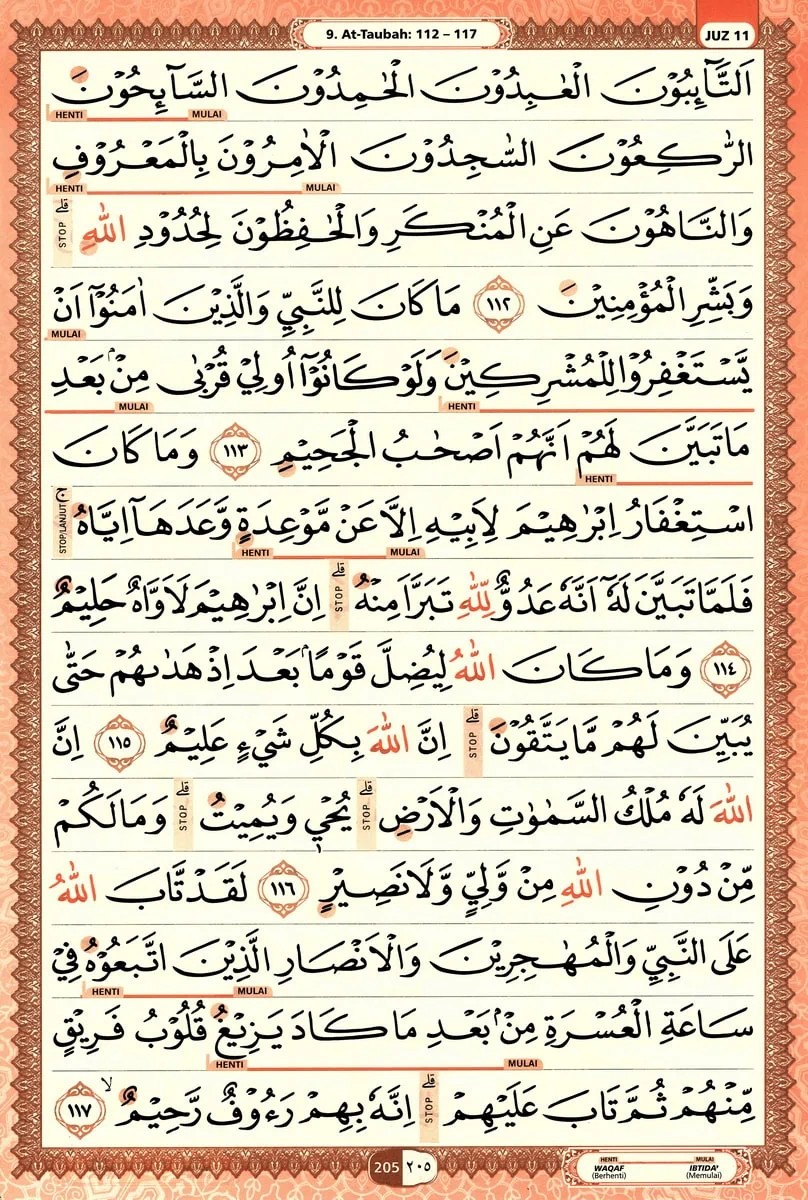 9. At-Taubah: 112 – 117
JUZ 11
اَلتَّاۤىِٕبُوْنَ الْعٰبِدُوْنَ الْحٰمِدُوْنَ السَّاۤىِٕحُوْنَ
HENTI MULAI
الرّٰكِعُوْنَ السّٰجِدُوْنَ الْاٰمِرُوْنَ بِالْمَعْرُوْفِ
HENTI MULAI
وَالنَّاهُوْنَ عَنِ الْمُنْكَرِ وَالْحٰفِظُوْنَ لِحُدُوْدِ اللّٰهِ ۗ STOP
وَبَشِّرِ الْمُؤْمِنِيْنَ ١١٢ مَا كَانَ لِلنَّبِيِّ وَالَّذِيْنَ اٰمَنُوْٓا اَنْ
MULAI
يَّسْتَغْفِرُوْا لِلْمُشْرِكِيْنَ وَلَوْ كَانُوْٓا اُولِيْ قُرْبٰى مِنْۢ بَعْدِ
HENTI MULAI
مَا تَبَيَّنَ لَهُمْ اَنَّهُمْ اَصْحٰبُ الْجَحِيْمِ ١١٣ وَمَا كَانَ
HENTI
اسْتِغْفَارُ اِبْرٰهِيْمَ لِاَبِيْهِ اِلَّا عَنْ مَّوْعِدَةٍ وَّعَدَهَآ اِيَّاهُ ۚ STOP/LANJUT
HENTI MULAI
فَلَمَّا تَبَيَّنَ لَهٗٓ اَنَّهٗ عَدُوٌّ لِّلّٰهِ تَبَرَّاَ مِنْهُ ۗ STOP اِنَّ اِبْرٰهِيْمَ لَاَوَّاهٌ حَلِيْمٌ
١١٤ وَمَا كَانَ اللّٰهُ لِيُضِلَّ قَوْمًاۢ بَعْدَ اِذْ هَدٰىهُمْ حَتّٰى
يُبَيِّنَ لَهُمْ مَّا يَتَّقُوْنَ ۗ STOP اِنَّ اللّٰهَ بِكُلِّ شَيْءٍ عَلِيْمٌ ١١٥ اِنَّ
اللّٰهَ لَهٗ مُلْكُ السَّمٰوٰتِ وَالْاَرْضِ ۗ STOP يُحْيٖ وَيُمِيْتُ ۗ STOP وَمَا لَكُمْ
مِّنْ دُوْنِ اللّٰهِ مِنْ وَّلِيٍّ وَّلَا نَصِيْرٍ ١١٦ لَقَدْ تَّابَ اللّٰهُ
عَلَى النَّبِيِّ وَالْمُهٰجِرِيْنَ وَالْاَنْصَارِ الَّذِيْنَ اتَّبَعُوْهُ فِيْ
HENTI MULAI
سَاعَةِ الْعُسْرَةِ مِنْۢ بَعْدِ مَا كَادَ يَزِيْغُ قُلُوْبُ فَرِيْقٍ
HENTI MULAI
مِّنْهُمْ ثُمَّ تَابَ عَلَيْهِمْ ۗ STOP اِنَّهٗ بِهِمْ رَءُوْفٌ رَّحِيْمٌ ۙ ١١٧
205 ٢٠٥
HENTI MULAI
WAQAF IBTIDA'
(Berhenti) (Memulai)